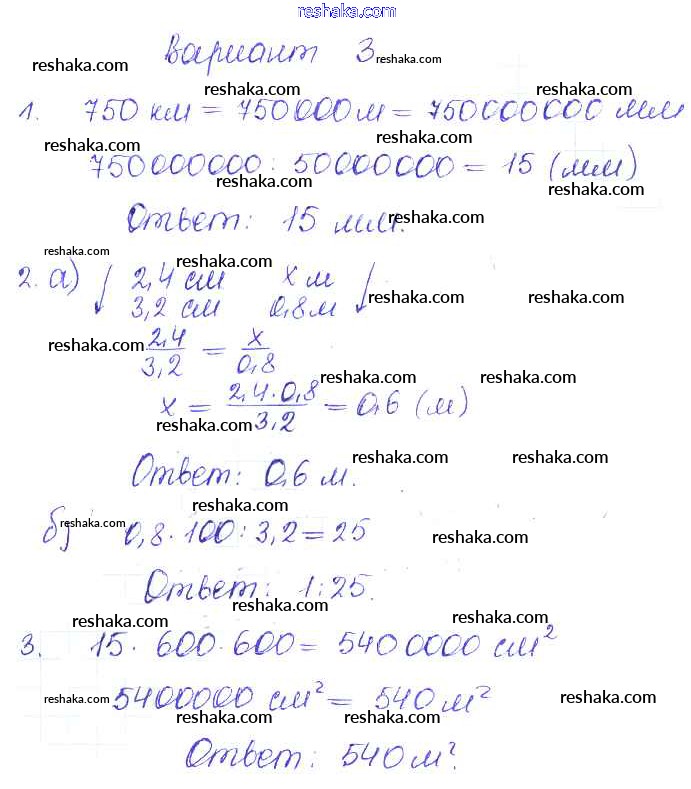 reshaka.com
Вариант 3 reshaka.com
reshaka.com
reshaka.com reshaka.com
1. 750 км = 750000 м = 750000000 мм
reshaka.com reshaka.com
750000000 : 50000000 = 15 (мм)
reshaka.com reshaka.com
Ответ: 15 мм. reshaka.com
reshaka.com reshaka.com
2. а) ↓ 2,4 см х м ↓
3,2 см 0,8 м reshaka.com reshaka.com
reshaka.com 2,4/3,2 = х/0,8
reshaka.com reshaka.com
х = 2,4·0,8/3,2 = 0,6 (м)
reshaka.com
reshaka.com reshaka.com
Ответ: 0,6 м.
reshaka.com
б) reshaka.com 0,8·100:3,2=25 reshaka.com
Ответ: 1:25.
reshaka.com
reshaka.com reshaka.com
3. 15·600·600= 5400000 см²
reshaka.com 5400000 см² = 540 м² reshaka.com
reshaka.com reshaka.com
Ответ: 540 м².
reshaka.com reshaka.com